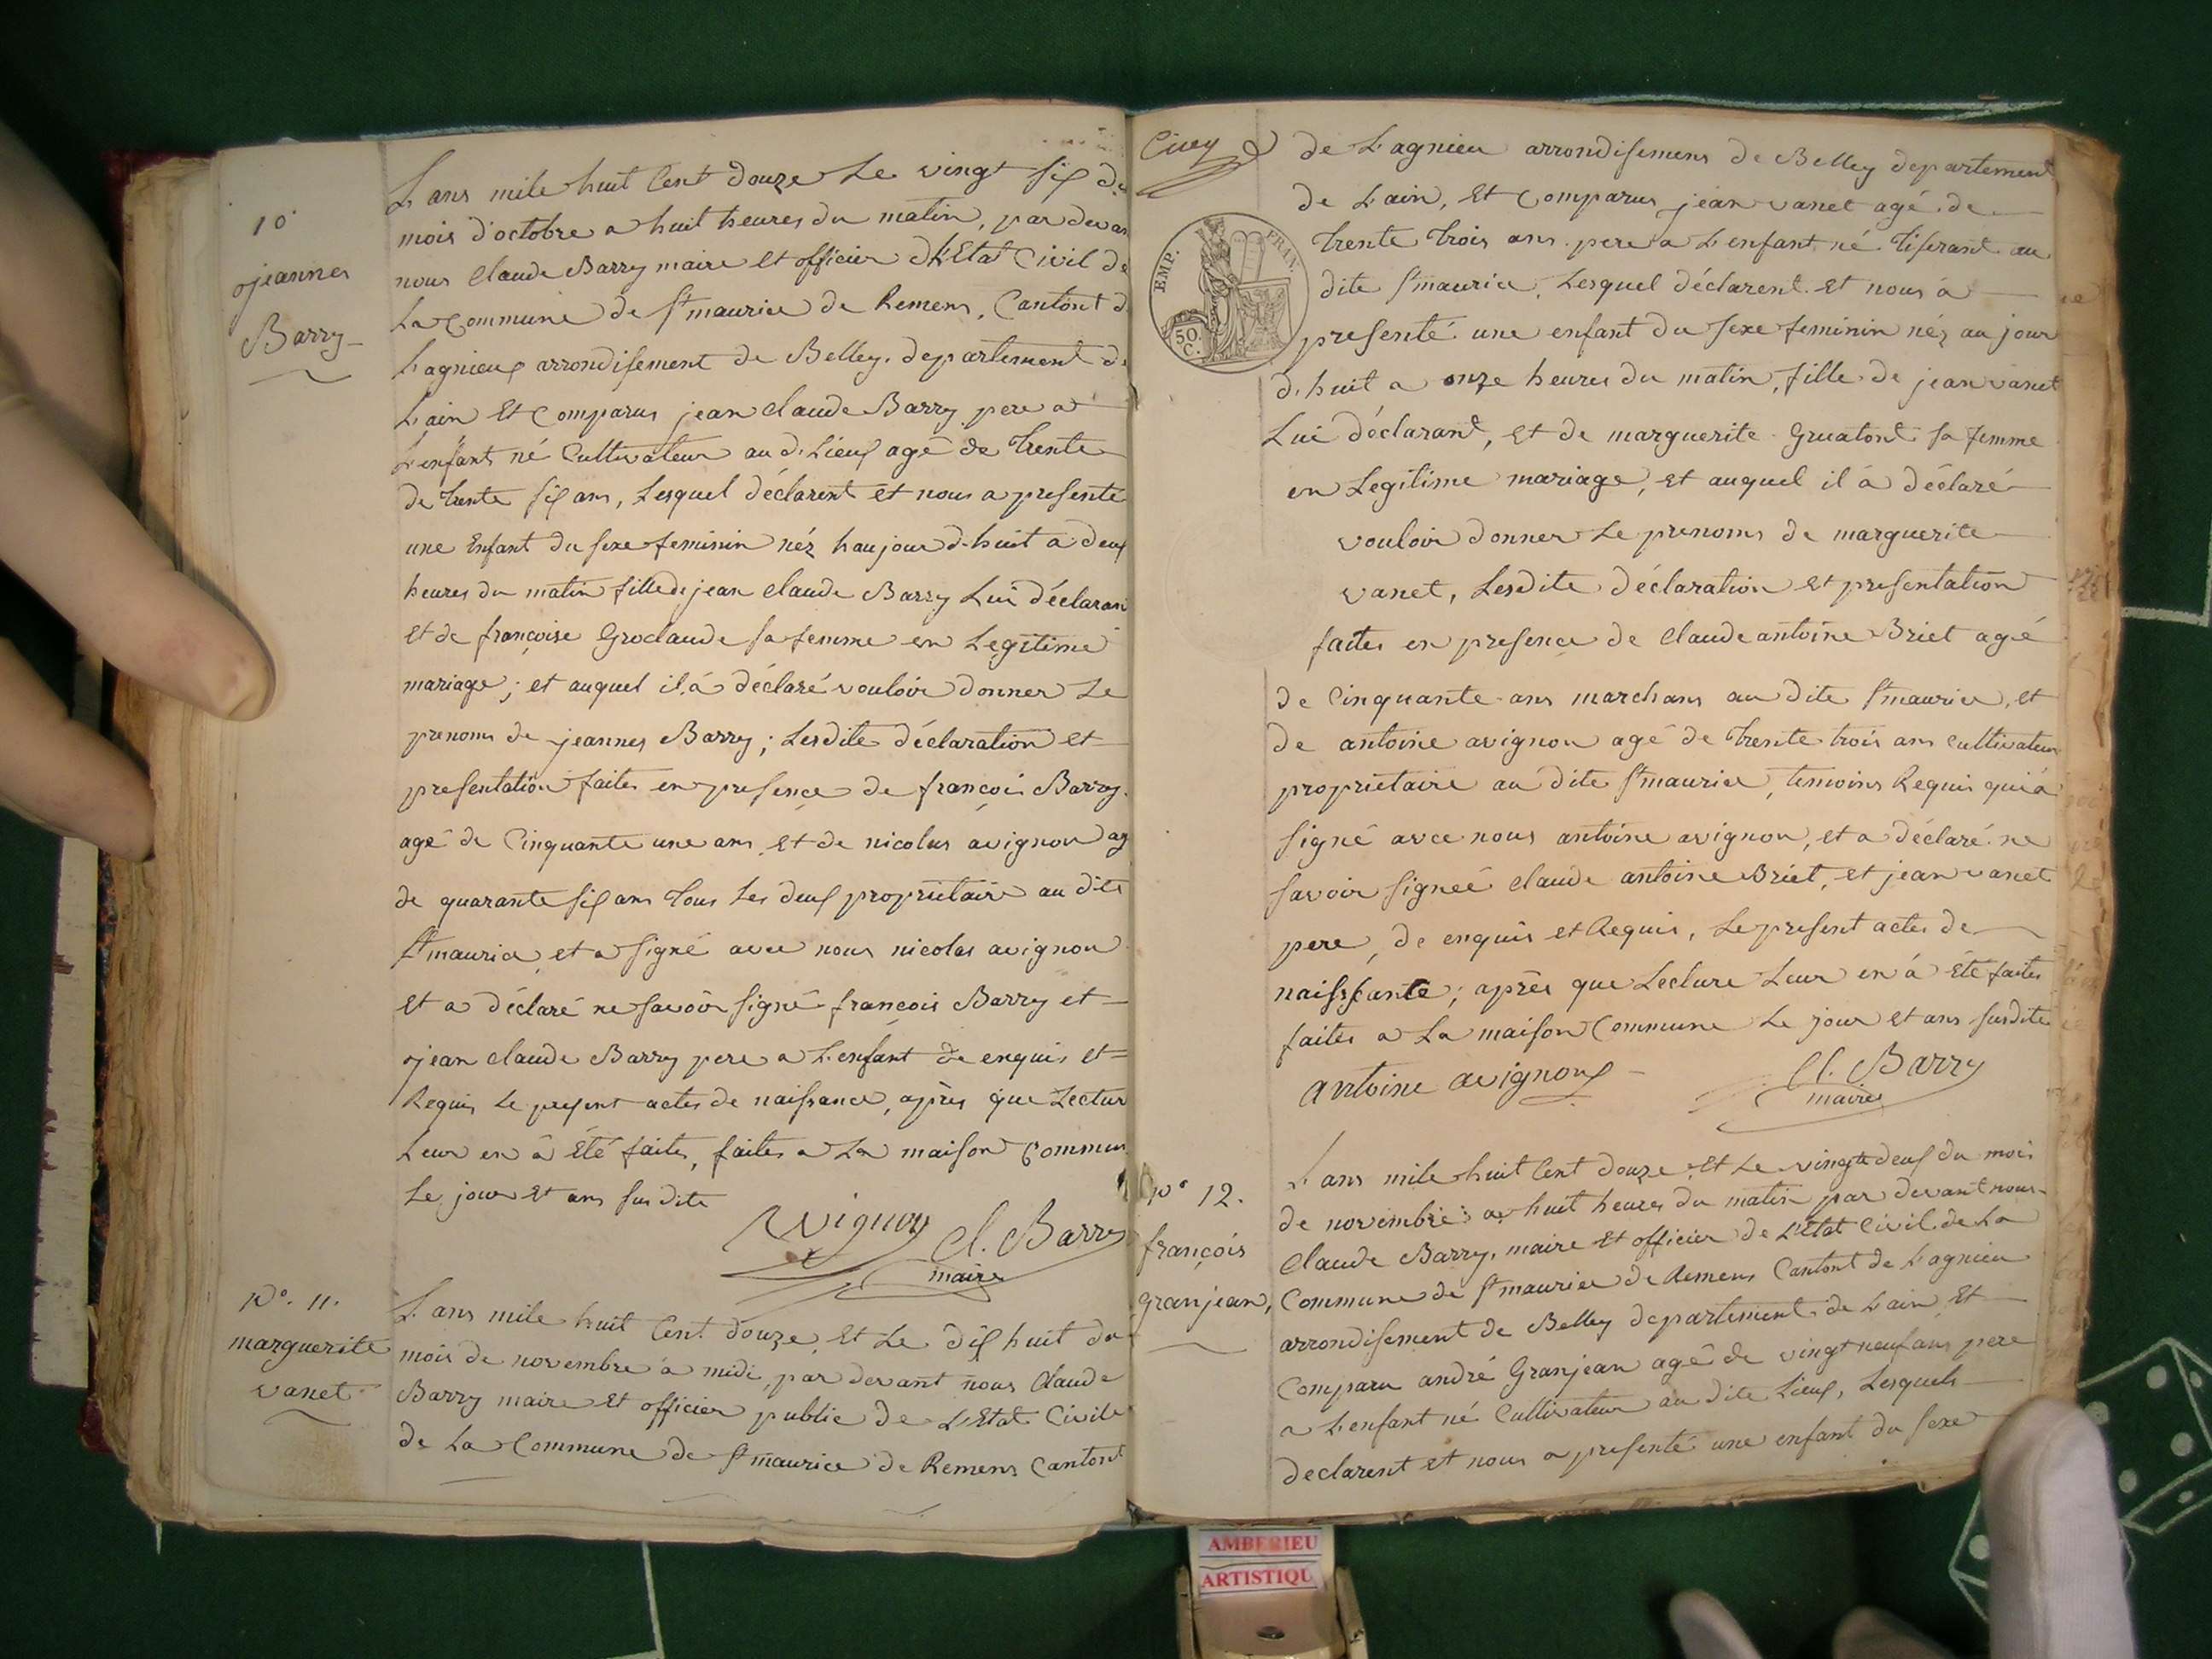 10
jeannes
Barry
L'ans mile huit Cent douze Le vingt six du
mois d'octobre a huit heures du matin, par devan
nous Claude Barry maire Et officier d'Etat Civil de
La Commune de St maurice de Remens, Cantont d
Lagnieux arrondisement de Belley, departement de
L'ain Et Comparus jean Claude Barry pere a
L'enfant né Cultivateur au d. Lieux agé de trente
de trente six ans, Lesquel déclarent et nous a presente
une Enfant du sexe feminin néz haujour d'huit a deux
heures du matin fille de jean Claude Barry Lui déclarant
Et de françoise Groclaude sa femme en Legitime
mariage; et auquel il à déclaré vouloir donner Le
prenoms de jeannes Barry; Lesdite déclaration et
presentation faites en presence de françois Barry
agé de Cinquante une ans, et de nicolas avignon ag
de quarante six ans tous Les deux proprietaire au dite
St maurice, et a signé avec nous nicolas avignon
et a déclaré ne savoir signé françois Barry et
jean Claude Barry pere a L'enfant de enquis et
Requis Le present actes de naissance, après que Lectur
Leur en à Été faites, faites a La maison Commun
Le jour et ans sus dite
Avignon Cl. Barry
maire
No. 11.
marguerite
vanet
L'ans mile huit Cent douze, Et Le dix huit du
mois de novembre à midi, par devant nous Claude
Barry maire Et officier public de L'Etat Civile
de La Commune de St maurice de Remens Cantont
de Lagnieu arrondisement de Belley departement
de L'ain, Et Comparus jean vanet agé de
EMP. FRAN.
50 C.
trente trois ans pere a L'enfant né tiserant au
dite St maurice, Lesquel déclarent et nous à
presenté une enfant du sexe feminin néz au jour
d'huit a onze heures du matin, fille de jean vanet
Lui déclarant, et de marguerite Gruatont sa femme
en Legitime mariage, et auquel il à déclaré
vouloir donner Le prenoms de marguerite
vanet, Lesdite déclaration et presentation
faites en presence de Claude antoine Briet agé
de Cinquante ans marchans au dite St maurice, et
de antoine avignon agé de trente trois ans cultivateur
proprietaire au dite St maurice, temoins Requis qui à
signé avec nous antoine avignon, et a déclaré ne
savoir signeé Claude antoine Briet, et jean vanet
pere, de enquis et Requis, Le present actes de
naissante; après que Lecture Leur en à été faites
faites a La maison Commune Le jour et ans susdite
antoine avignon Cl. Barry
maire
No 12.
françois
granjean,
L'ans mile huit Cent douze, Et Le vingte deux du mois
de novembre a huit heures du matin par devant nous
Claude Barry, maire Et officier de L'état Civil de La
Commune de St maurice de Remens Cantont de Lagnieu
arrondisement de Belley departement de L'ain Et
Comparu andré Granjean agé de vingt neuf ans pere
a L'enfant né Cultivateur au dite Lieux, Lesquels
declarent et nous a presenté une enfant du sexe
AMBERIEU
ARTISTIQU